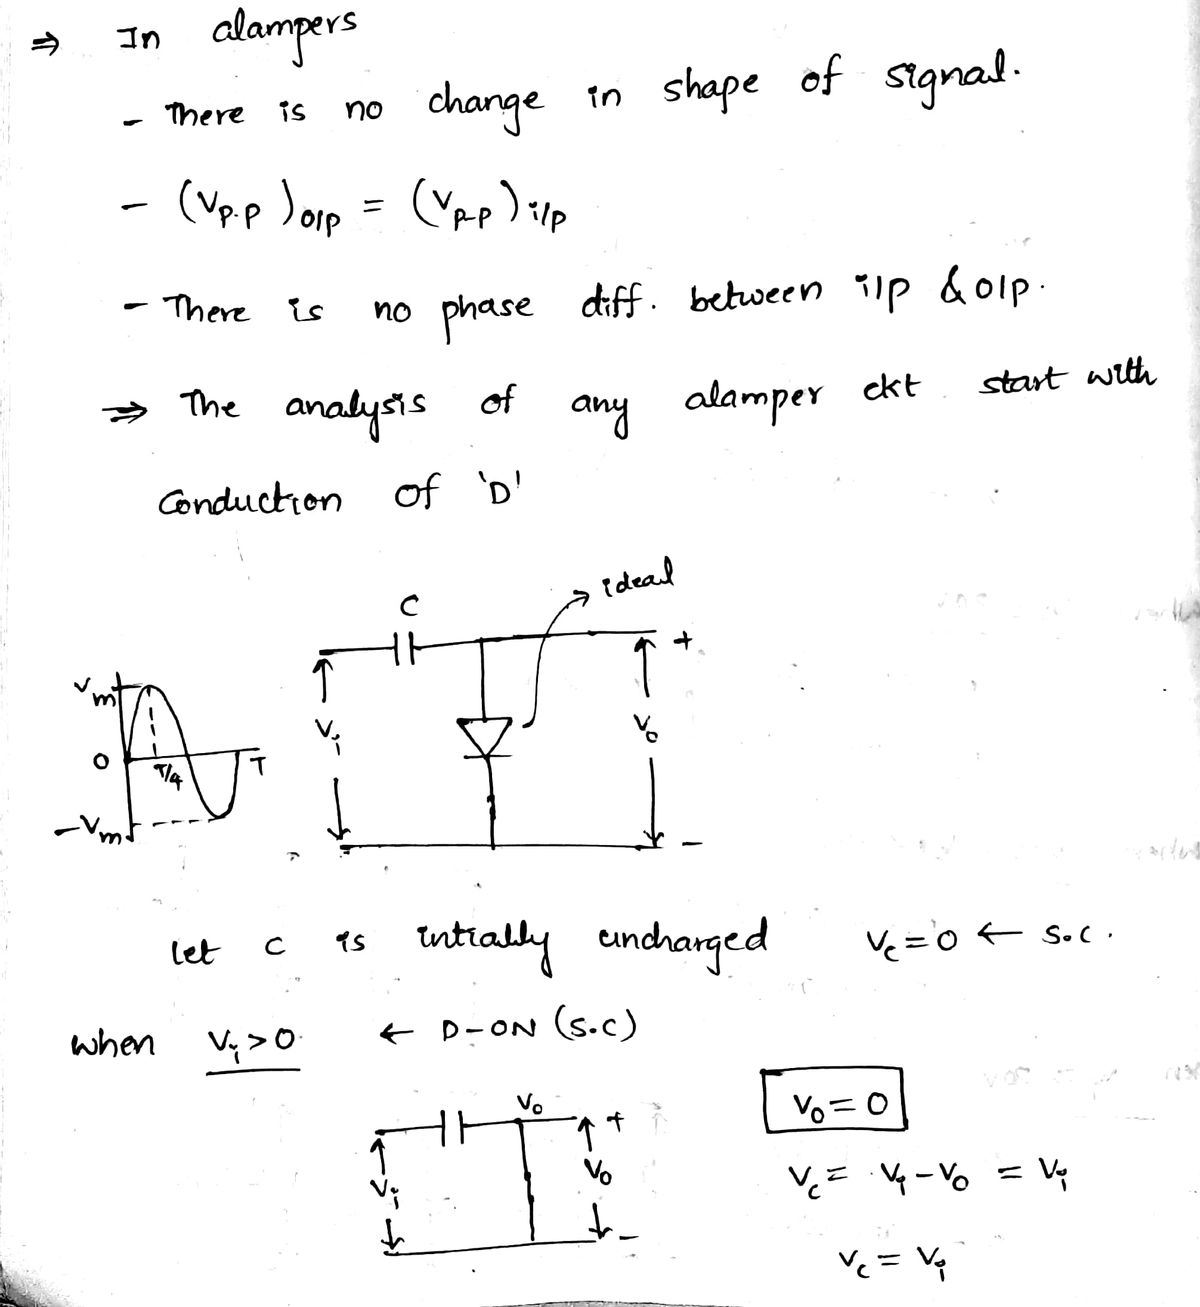 ⇒ In clampers
- There is no change in shape of signal.
- (Vp-p)o/p = (Vp-p)i/p
- There is no phase diff. between i/p & o/p.
⇒ The analysis of any clamper ckt start with
Conduction of 'D'
C
→ ideal
Vm
0
T/4
T
-Vm
Vi
+
Vo
-
let C is intially uncharged Vc=0 ← S.C.
when Vi>0 ← D-ON (S.C)
Vo
+
Vi
Vo
-
Vo=0
Vc = Vi-Vo = Vi
Vc = Vi